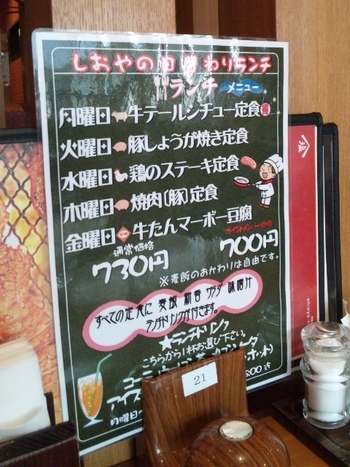 しおやの日替わりランチ
ランチ メニュー
月曜日 牛テールシチュー定食
火曜日 豚しょうが焼き定食
水曜日 鶏のステーキ定食
木曜日 焼肉(豚)定食
金曜日 牛たんマーボー豆腐
通常価格
730円 700円
※麦飯のおかわりは自由です。
すべての定食に 麦飯 新香 サラダ 味噌汁
ランチドリンクが付きます。
★ランチドリンク
こちらから1杯お選び下さい。
21